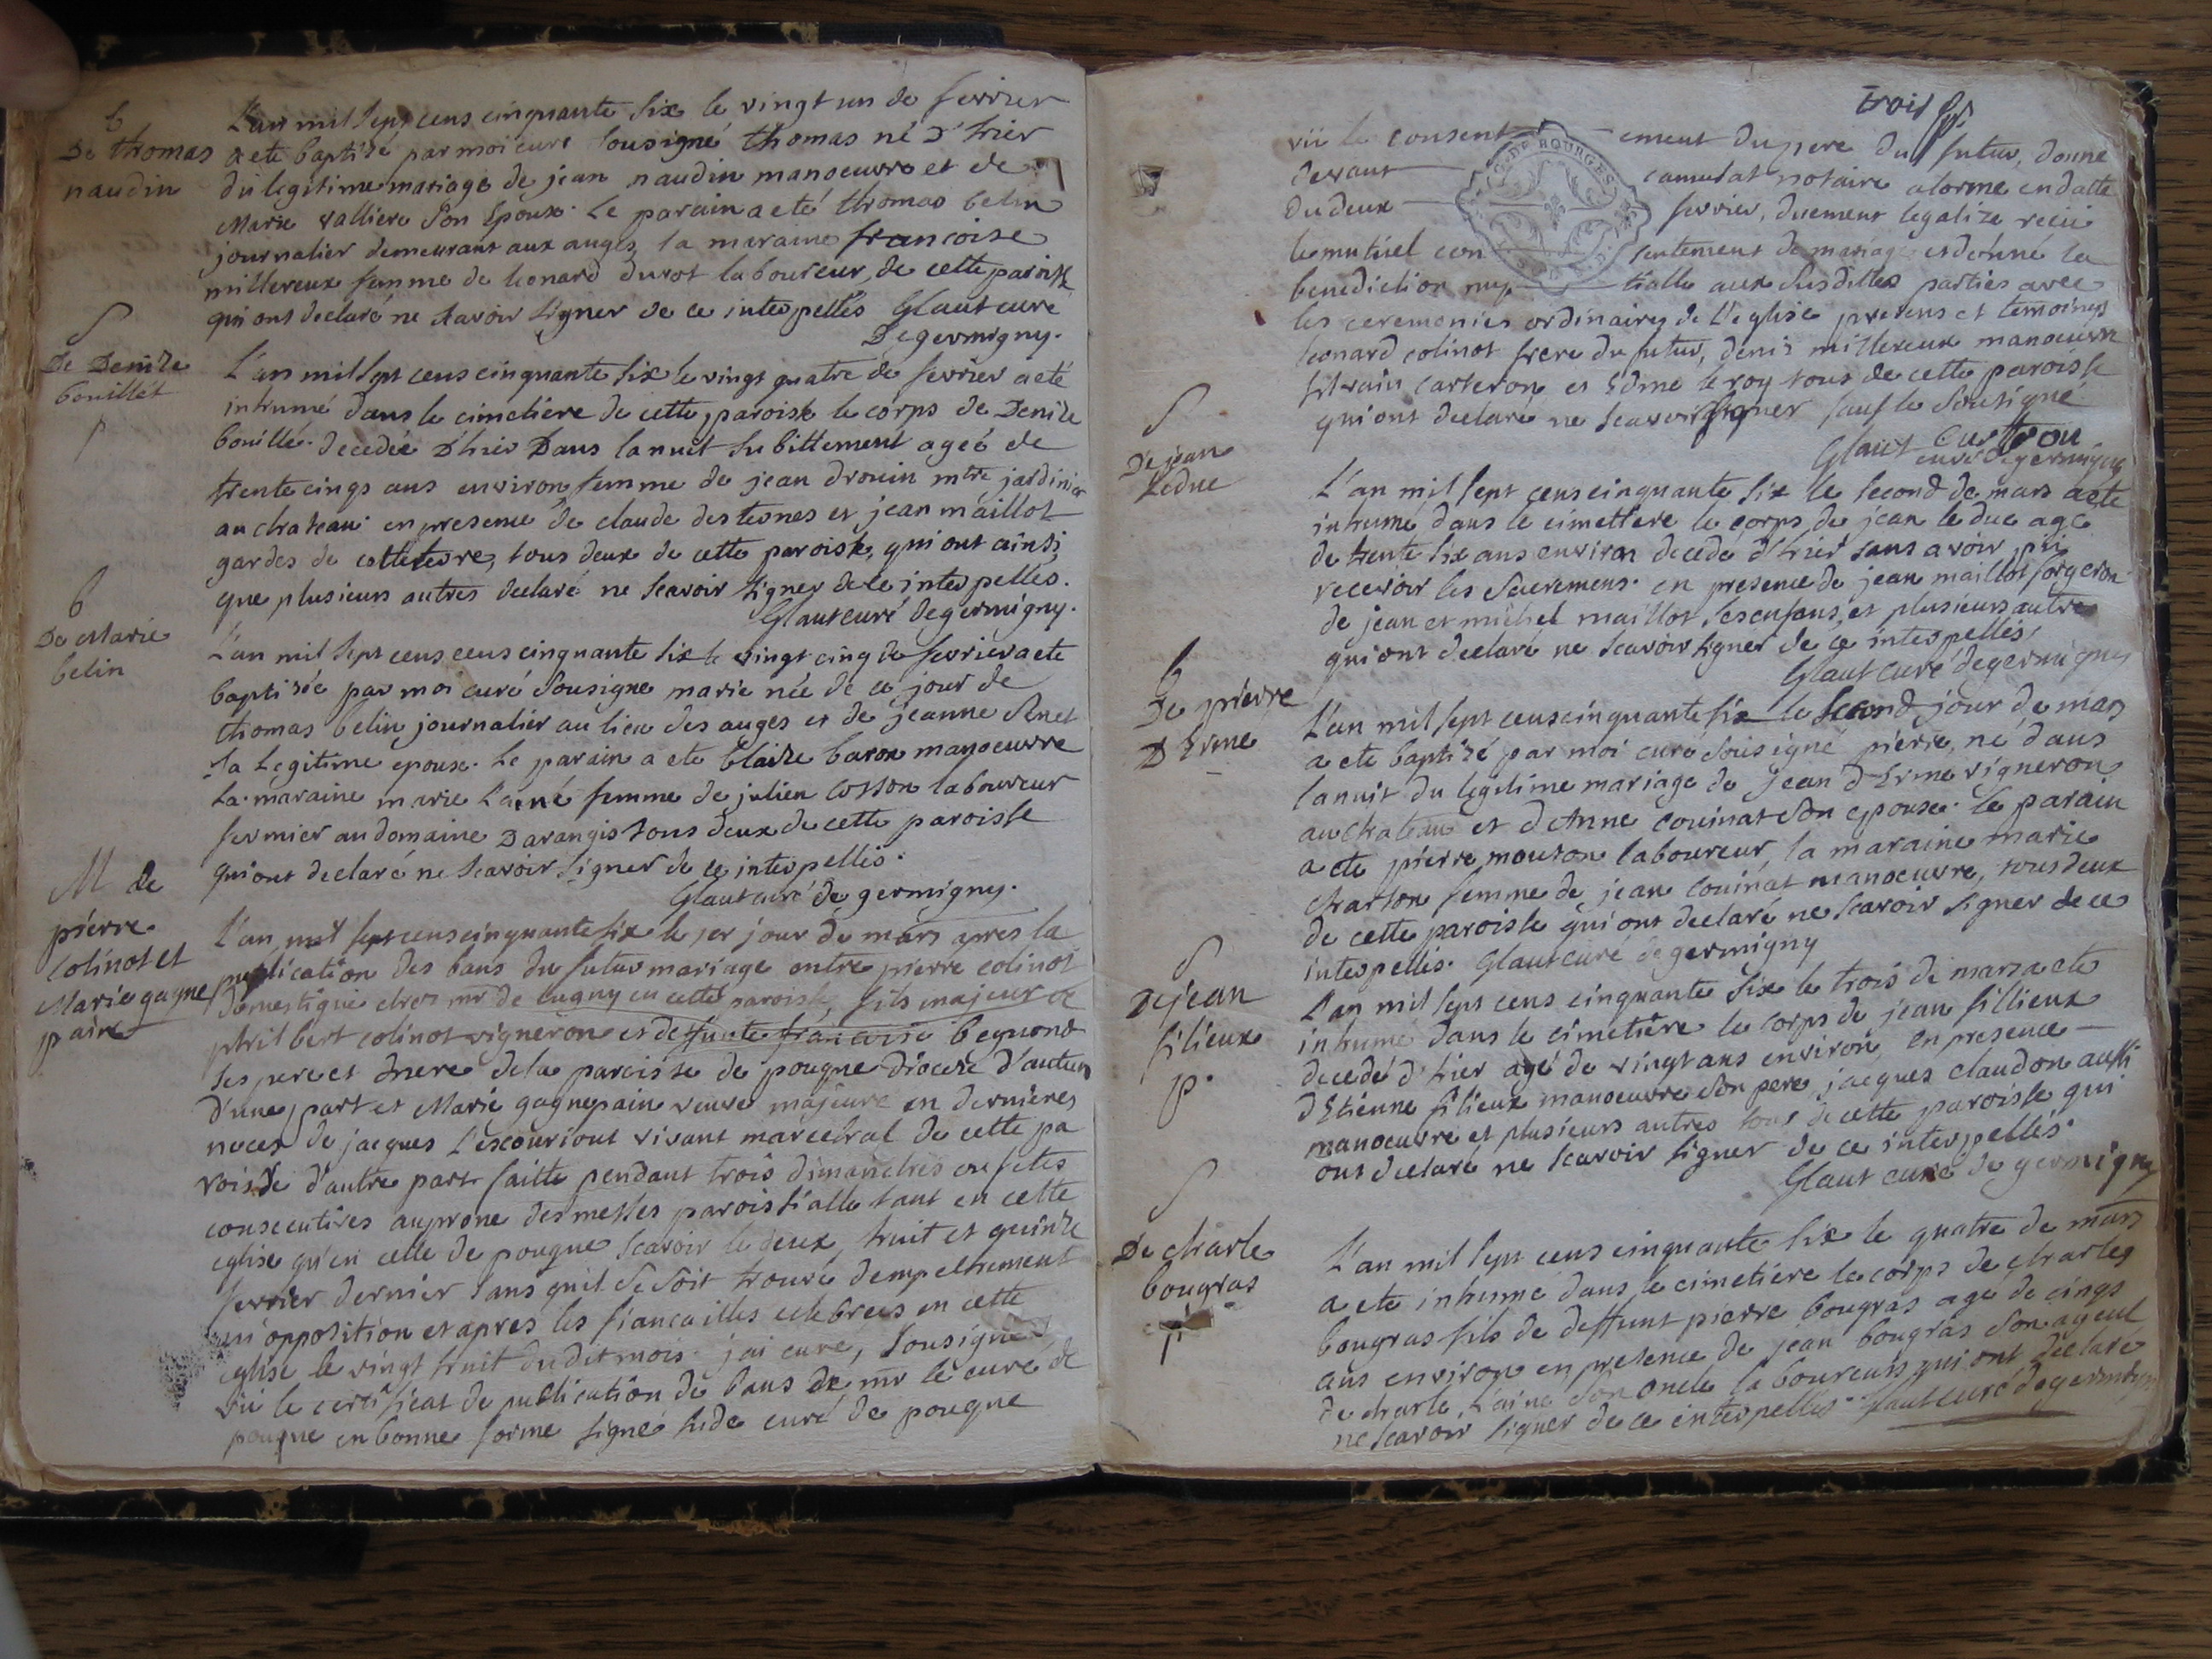 b
De thomas
naudin
L'an mil sept cens cinquante six le vingt un de fevrier
a ete baptisé par moi curé sousigné thomas né D'hier
du legitime mariage de jean naudin manoeuvre et de
Marie valliere son Epouse. Le parain a eté thomas belin
journalier demeurant aux auges, la maraine francoise
millereux femme de leonard durot laboureur, de cette paroisse
qui ont declaré ne scavoir signer de ce interpellés Glaut curé
De germigny.
S
De Denize
bouillét
p
L'an mil sept cens cinquante six le vingt quatre de fevrier a eté
inhumé dans le cimetiere de cette paroisse le corps de Denize
bouillé. decedée D'hier Dans la nuit subittement ageé de
trente cinqs ans environ femme de jean drouin mtre jardinier
au chateau. en presence de claude desternes et jean maillot
gardes de cette terre, tous deux de cette paroisse, qui ont ainsi
que plusieurs autres declaré ne scavoir signer de ce interpellés.
Glaut curé de germigny.
b
De Marie
belin
L'an mil sept cens cens cinquante six le vingt cinq de fevrier a ete
baptisée par moi curé sousigné marie née de ce jour de
thomas belin journalier au lieu des auges et de jeanne Senet
sa Legitime epouse. Le parain a ete blaize baron manoeuvre
La maraine marie Lainé femme de julien cosson laboureur
fermier au domaine Darangis tous deux de cette paroisse
qui ont declaré ne scavoir signer de ce interpellés.
Glaut curé de germigny.
M de
pierre
colinot et
Marie gagne
pain
L'an mil sept cens cinquante six le 1er jour de mars apres la
publication des bans du futur mariage entre pierre colinot
domestique chez mr de lugny en cette paroisse, fils majeur de
philbert colinot vigneron et deffunte francoise begnond
ses pere et mere de la paroisse de pougue diocese d'autun
d'une part et Marie gagnepain veuve majeure en dernieres
noces de jacques Lescouriout vivant marechal de cette pa
roisse d'autre part faitte pendant trois dimanches ou fetes
consecutives au prone des messes paroissialle tant en cette
eglise qu'en celle de pougue scavoir le deux, huit et quinze
fevrier dernier sans quil se soit trouvé dempechement
ni opposition et apres les fiancailles celebrees en cette
eglise le vingt huit dudit mois. j'ai curé, sousigné,
vû le certificat de publication de bans de mr le curé de
pougue en bonne forme signé hide curé de pougue
trois
vû le consentement du pere du futur, donné
devant camusat notaire a lorme en datte
du deux fevrier, duement legalize recû
le mutuel consentement de mariage et donné la
benediction nuptialle aux susdittes parties avec
les ceremonies ordinaires de L'eglise presens et temoings
leonard colinot frere du futur, denis millereux manoeuvre
silvain carteron et Edme le roy tous de cette paroisse
qui ont declaré ne scavoir signer sauf le sousigné.
Carteron
Glaut curé de germigny
S
De jean
Leduc
L'an mil sept cens cinquante six le second de mars a ete
inhumé dans le cimettiere le corps de jean le duc agé
de trente six ans environ decedé d'hier sans avoir pû
recevoir les sacremens. en presence de jean maillot forgeron
de jean et michel maillot ses enfans, et plusieurs autres
qui ont declaré ne scavoir signer de ce interpellés.
Glaut curé de germigny
b
De pierre
D Erme
L'an mil sept cens cinquante six le second jour de mars
a ete baptisé par moi curé sousigné pierre, né dans
la nuit du legitime mariage de jean d'Erme vigneron
au chateau et d'Anne couinat son epouse. le parain
a ete pierre mouton laboureur, la maraine marie
charton femme de jean couinat manoeuvre, tous deux
de cette paroisse qui ont declaré ne scavoir signer de ce
interpellés. Glaut curé de germigny
S
De jean
filieux
p.
L'an mil sept cens cinquante six le trois de mars a ete
inhumé dans le cimetiere le corps de jean fillieux
decedé d'hier agé de vingt ans environ, en presence
d'Etienne filieux manoeuvre son pere, jacques claudon aussi
manoeuvre et plusieurs autres tous de cette paroisse qui
ont declaré ne scavoir signer de ce interpellés.
Glaut curé de germigny
S
De charle
bougras
p
L'an mil sept cens cinquante six le quatre de mars
a ete inhumé dans le cimetiere le corps de charles
bougras fils de deffunt pierre bougras agé de cinqs
ans environ en presence de jean bougras son ayeul
de charle L'ainé son oncle laboureurs qui ont declaré
ne scavoir signer de ce interpellés. Glaut curé de germigny